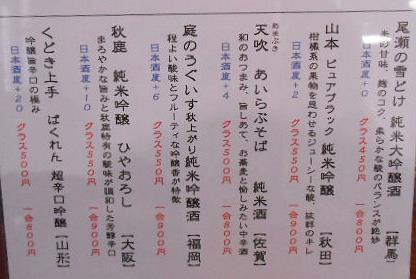 尾瀬の雪どけ 純米大吟醸酒【群馬】
米の甘味、麹のコク、柔らかな酸のバランスが絶妙
日本酒度+0 グラス450円 一合800円
山本 ピュアブラック 純米吟醸【秋田】
柑橘系の果物を思わせるジューシーな酸、抜群のキレ
日本酒度+2 グラス550円 一合900円
あまぶき
天吹 あいらぶそば 純米酒【佐賀】
和のおつまみ、旨しあて、お蕎麦と愉しみたい中辛酒
日本酒度+4 グラス500円 一合800円
庭のうぐいす 秋上がり 純米吟醸酒【福岡】
程よい酸味とフルーティな吟醸香が特徴
日本酒度+6 グラス550円 一合900円
秋鹿 純米吟醸 ひやおろし【大阪】
まろやかな旨みと秋鹿特有の酸味が調和した芳醇辛口
日本酒度+10 グラス550円 一合900円
くどき上手 ばくれん 超辛口吟醸【山形】
吟醸旨辛口の極み
日本酒度+20 グラス500円 一合800円